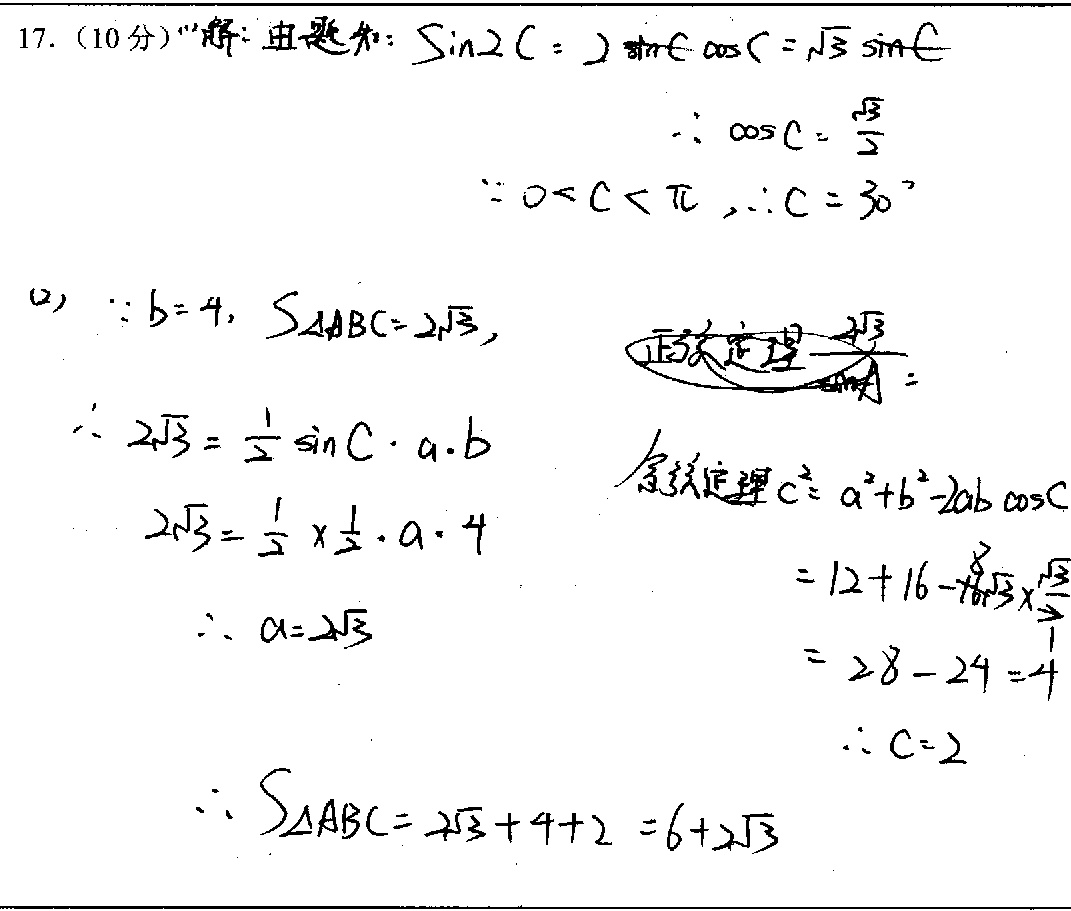 17.（10分）(1)解：由题知：Sin2C = 2 sinC cosC = √3 sinC
∴ cosC = √3/2
∵ 0 < C < π , ∴ C = 30°
(2) ∵ b = 4, S△ABC = 2√3,
∴ 2√3 = 1/2 sinC · a · b
2√3 = 1/2 × 1/2 · a · 4
∴ a = 2√3
正弦定理 2√3/sinA =
余弦定理 c² = a² + b² - 2ab cosC
= 12 + 16 - 16√3 × √3/2
= 28 - 24 = 4
∴ C = 2
∴ S△ABC = 2√3 + 4 + 2 = 6 + 2√3